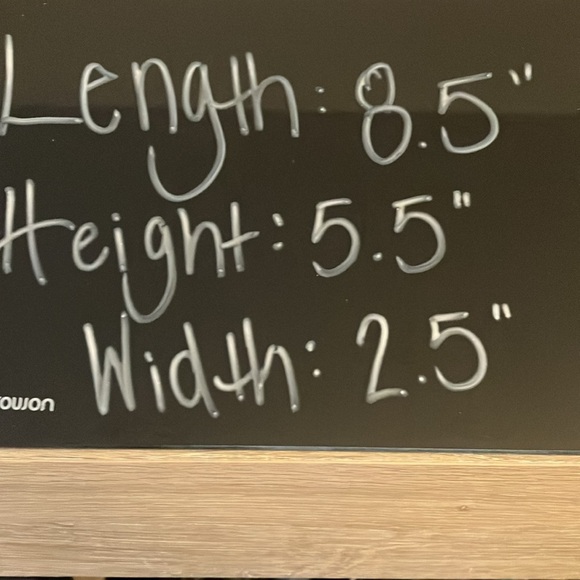 Length: 8.5"
Height: 5.5"
Width: 2.5"